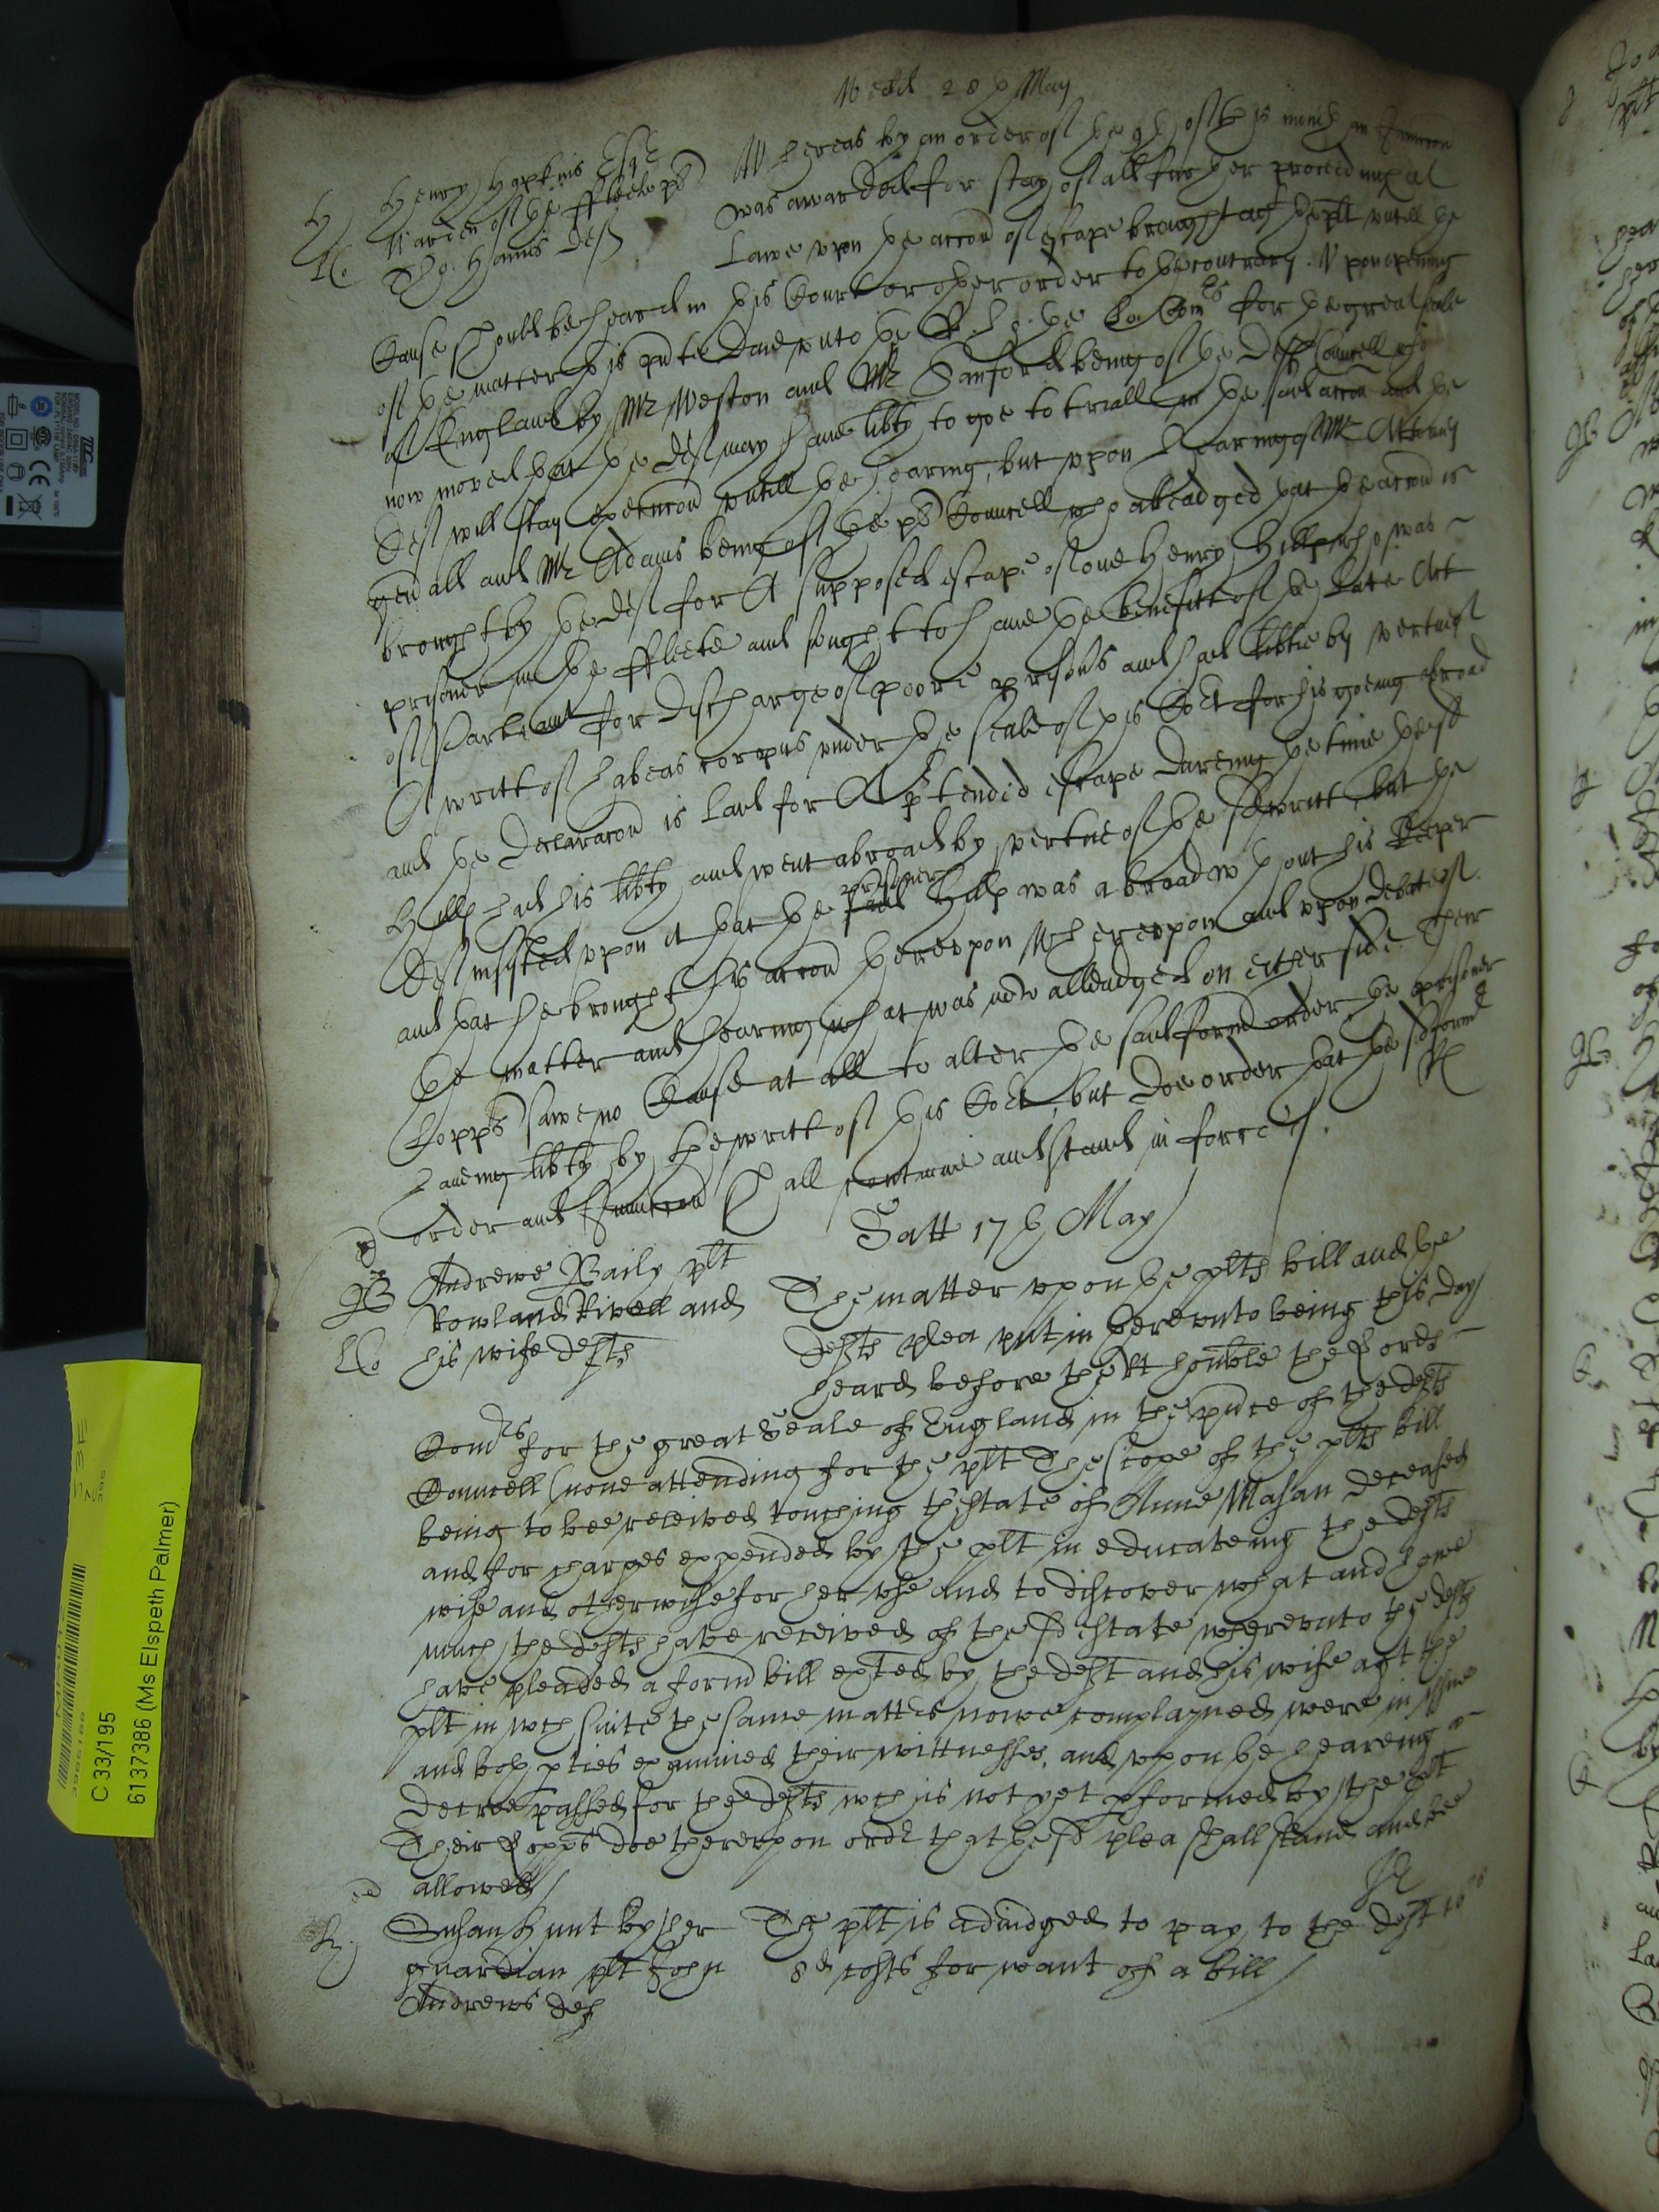 Wedd 28 th May
H Henry Hopkins Esqr
Warden of the Fleete pt
Tho. Harris Deft
Whereas by an order of the 9th of this month an Iniuncon
was awarded for stay of all further proceedings at
Lawe vpon the accon of escape brought agt the plt vntill the
Cause should be heard in this Court or other order to the contrary. Vpon opening
of the matter this pnte daie vnto the Lo. Comrs for the great seale
of England by Mr Weston and Mr Sanford being of the Defts Councell who
now moved that the Deft may have libty to goe to triall in the said accon and the
Deft will stay execucon vntill the hearing, but vpon hearing of Mr Attorny
genall and Mr Adams being of the pts Councell who alleadged that the accon is
brought by the deft for A supposed escape of one Henry Hilly who was
prisoner in the Fleete and sought to have the benefitt of the Late Act
of Parliamt for discharge of poore prisoners and had libtie by vertue of
A writt of habeas corpus vnder the seale of this Cort for his goeing abroad
and the Declaracon is laid for A ptended escape dureing the time the sd
Hilly had his libty and went abroad by vertue of the sd writt, but the
Deft insisted vpon it that the prisoner Hilly was abroad wthout his Keeper
and that he brought his accon therevpon Wherevpon and vpon debate of
the matter and hearing what was now alleadged on either side Their
Lopps sawe no Cause at all to alter the said form order, the prisoner
haveing libty by the writt of this Cort, but doe order that the sd form
order and Iniuncon shall continue and stand in force
Satt 17 th May
Andrewe Baily plt
Rowland Rivell and
his wife defts
The matter vpon the plts bill and the
defts plea put in therevnto being this day
heard before the Rt honble the Lords
Comrs for the great Seale of England in the pnce of the defts
Councell (none attending for the plt The scope of the plts bill
being to bee releived touching the state of Anne Mason deceased
and for charges expended by the plt in educateing the defts
wife and otherwise for her vse and to discover what and howe
much the defts have received of the sd estate wherevnto the defts
have pleaded a form bill exhted by the deft and his wife agt the
plt in wch suite the same mattrs nowe complayned were in issue
and both pties examined their wittnesses, and vpon the heareing a
decree passed for the defts wch is not yet pformed by the plt
Their Lopps doe therevpon ordr that the sd plea shall stand and bee
allowed
Susan Hunt by her
guardian plt John
Andrews def
The plt is adiudged to pay to the deft 16s
8d costs for want of a bill
C 33/195
6137386 (Ms Elspeth Palmer)